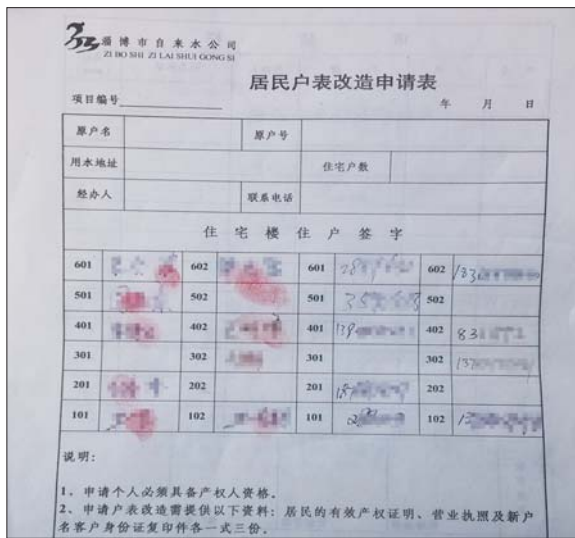 淄博市自来水公司
ZI BO SHI ZI LAI SHUI GONG SI
居民户表改造申请表
项目编号 年 月 日
原户名 原户号
用水地址 住宅户数
经办人 联系电话
住宅楼住户签字
601 602 601 602
501 502 501 502
401 402 401 402
301 302 301 302
201 202 201 202
101 102 101 102
说明:
1、申请个人必须具备产权人资格。
2、申请户表改造需提供以下资料:居民的有效产权证明、营业执照及新户
名客户身份证复印件各一式三份。